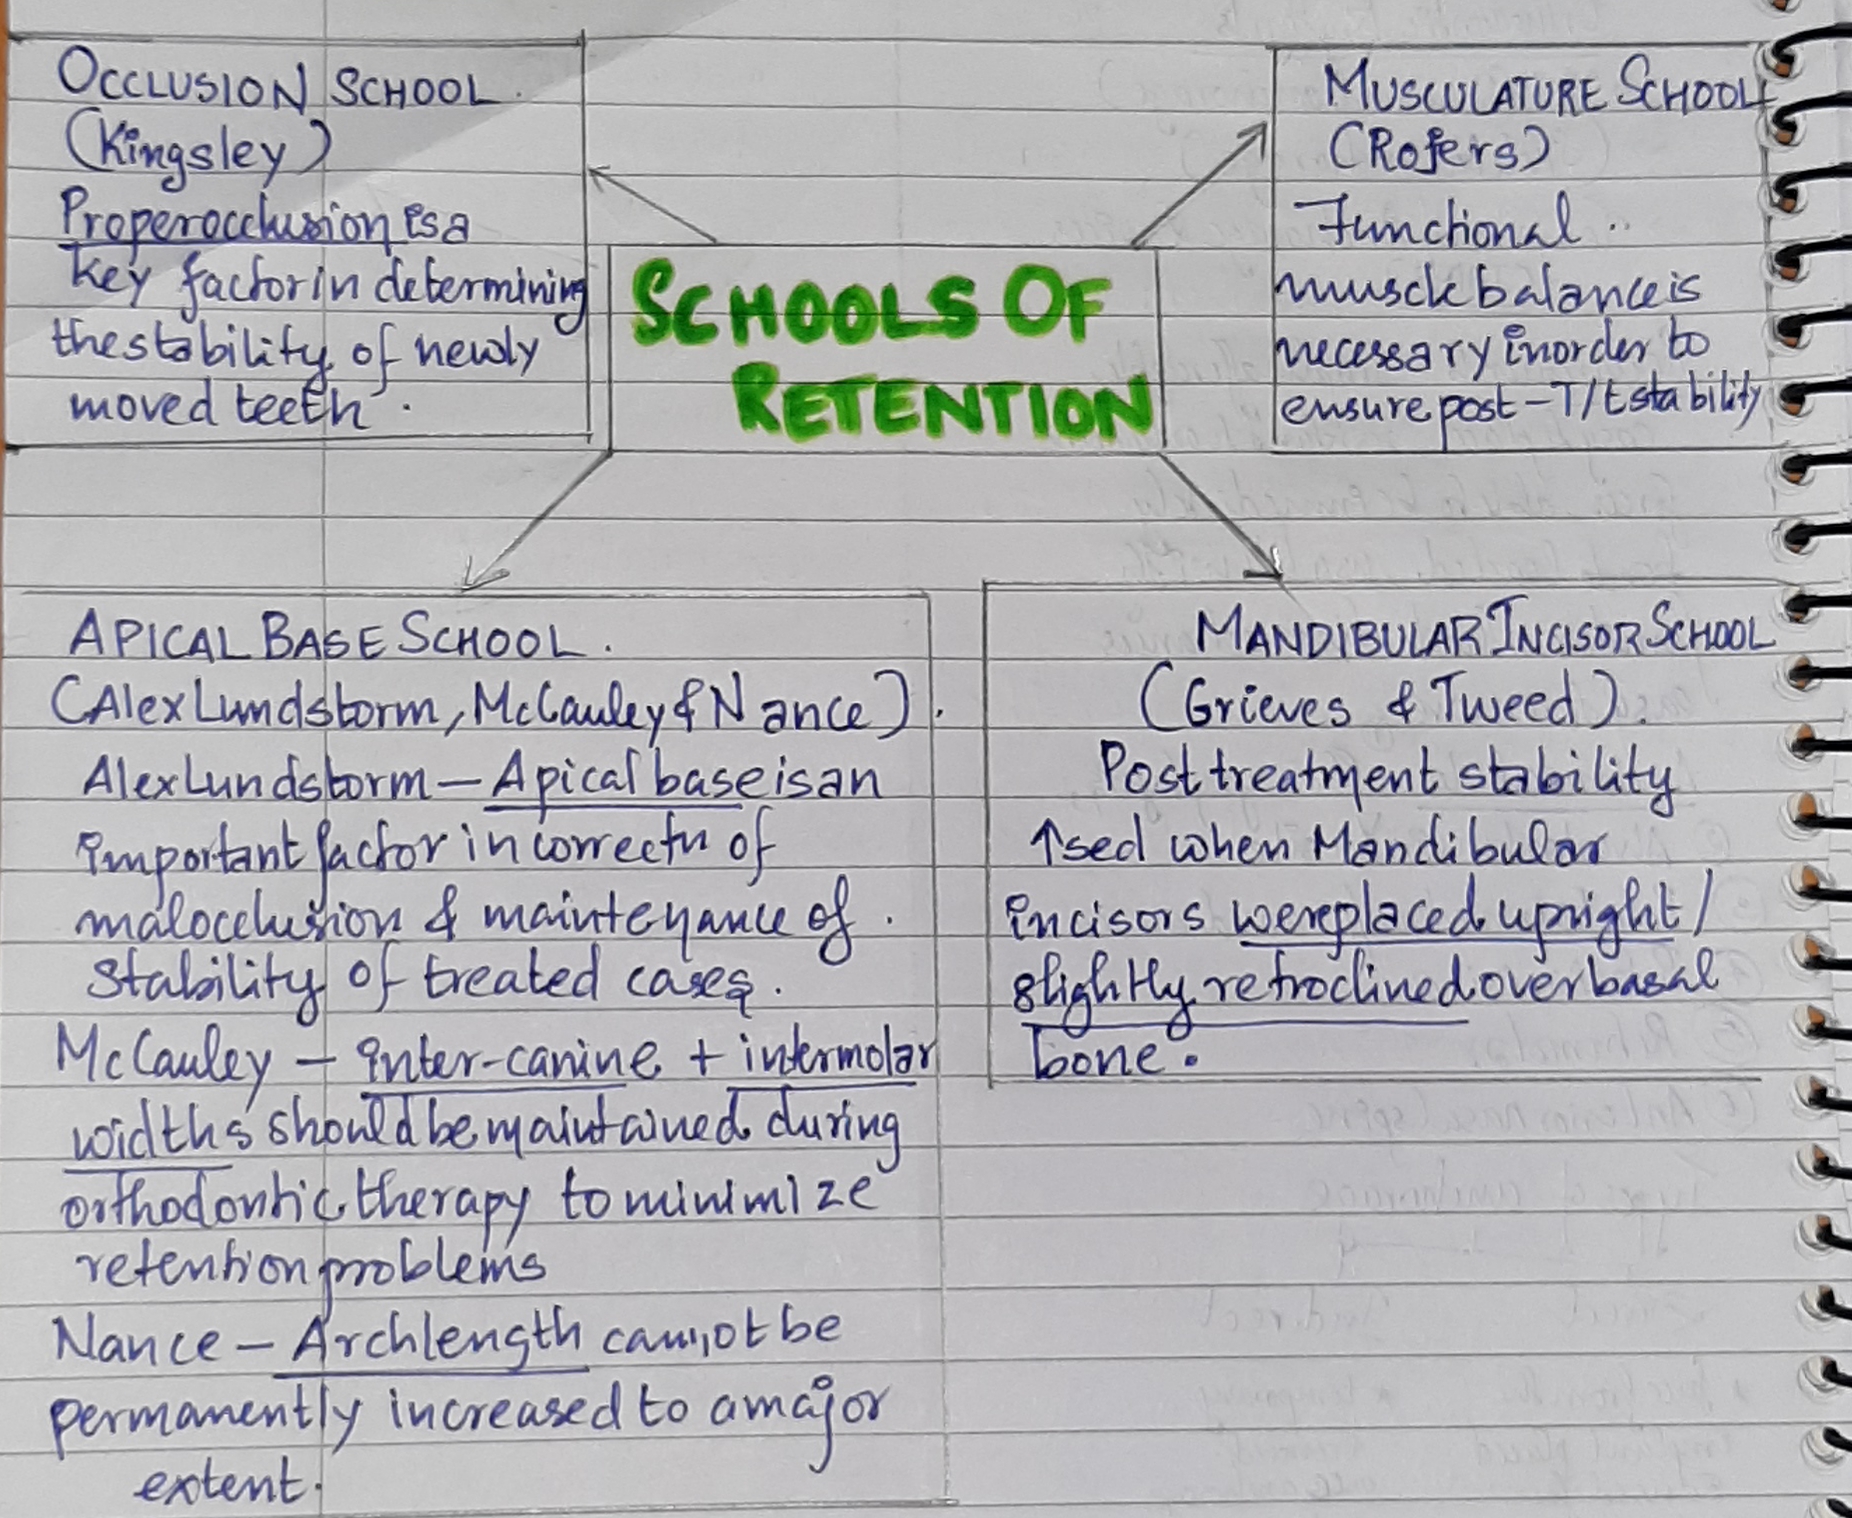 OCCLUSION SCHOOL.
(Kingsley)
Proper occlusion is a
key factor in determining
the stability of newly
moved teeth.
MUSCULATURE SCHOOL
(Rofers)
Functional
muscle balance is
necessary inorder to
ensure post-T/t stability
SCHOOLS OF
RETENTION
APICAL BASE SCHOOL.
(Alex Lundstorm, McCauley & Nance).
Alex Lundstorm - Apical base is an
important factor in correctn of
malocclusion & maintenance of
stability of treated cases.
McCauley - inter-canine + intermolar
widths should be maintained during
orthodontic therapy to minimize
retention problems
Nance - Arch length cannot be
permanently increased to a major
extent.
MANDIBULAR INCISOR SCHOOL
(Grieves & Tweed).
Post treatment stability
↑sed when Mandibular
incisors were placed upright/
slightly retroclined over basal
bone.